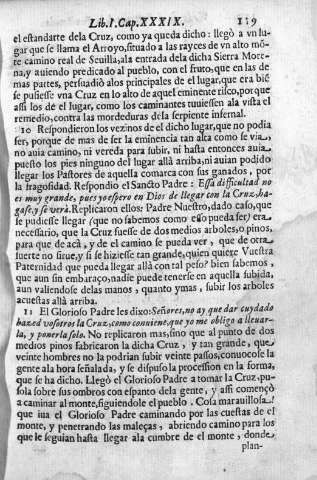 Lib. I. Cap. XXXIX. 119
el estandarte dela Cruz, como ya queda dicho: llegò a vn lu-
gar que se llama el Arroyo, situado a las rayces de vn alto mõ-
te camino real de Seuilla, ala entrada dela dicha Sierra More-
na, y auiendo predicado al pueblo, con el fruto, que en las de
mas partes, persuadiò alos principales de el lugar, que era biẽ
se pusiesse vna Cruz en lo alto de aquel eminente risco, porque
assi los de el lugar, como los caminantes tuuiessen ala vista el
remedio, contra las mordeduras dela serpiente infernal.
10 Respondieron los vezinos de el dicho lugar, que no podia
ser, porque de mas de ser la eminencia tan alta como se via,
no auia camino, ni vereda para subir, ni hasta entonces auia
puesto los pies ninguno del lugar allà arriba, ni auian podido
llegar los Pastores de aquella comarca con sus ganados, por
la fragosidad. Respondio el Sancto Padre: Essa difficultad no
es muy grande, pues yo espero en Dios de llegar con la Cruz, ha-
gase, y se verà. Replicaron ellos: Padre Nuestro, dado caso, que
se pudiesse llegar (que no sabemos como esso pueda ser) era
necessario, que la Cruz fuesse de dos medios arboles, o pinos,
para que de acà, y de el camino se pueda ver, que de otra
suerte no sirue, y si se hiziesse tan grande, quien quiere Vuestra
Paternidad que pueda llegar allà con tal peso? bien sabemos,
que aun sin embraço, nadie puede tenerse en aquella subida,
aun valiendose delas manos, quanto ymas, subir los arboles
acuestas allà arriba.
11 El Glorioso Padre les dixo: Señores, no ay que dar cuydado
hazed vosotros la Cruz, como conuiene, que yo me obligo a lleuar-
la, y ponerla solo. No replicaron mas, sino que al punto de dos
medios pinos fabricaron la dicha Cruz, y tan grande, que
veinte hombres no la podrian subir veinte passos, conuocose la
gente ala hora señalada, y se dispuso la procession en la forma,
que se ha dicho. Llegò el Glorioso Padre a tomar la Cruz, pu-
sola sobre sus ombros con espanto dela gente, y assi començò
a caminar al monte, siguiendole el pueblo. Cosa marauillosa!
que iua el Glorioso Padre caminando por las cuestas de el
monte, y penetrando las maleças, abriendo camino para los
que le seguian hasta llegar ala cumbre de el monte, donde
plan-